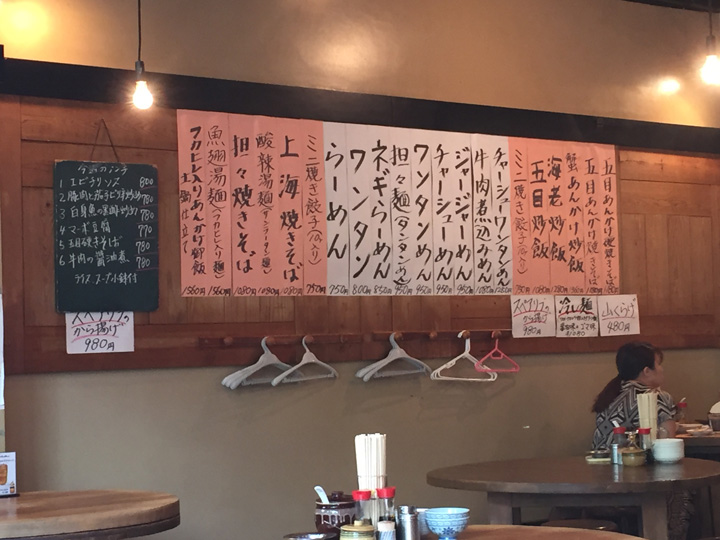 今週のランチ
1 エビチリソース 800
2 豚肉と茄子ピリ辛炒め 780
3 白身魚の黒胡椒炒め 780
4 マーボ豆腐 770
5 五目焼きそば 780
6 牛肉の醤油煮 780
ライス スープ 小鉢付
スペアリブの
から揚げ
980円
五目あんかけ堅焼きそば
五目あんかけ焼きそば
蟹あんかけ炒飯
海老炒飯
五目炒飯
ミニ焼き餃子(八コ入り)
チャーシューワンタンめん
牛肉煮込みめん
ジャージャーめん 950円
チャーシューめん 950円
ワンタンめん 950円
担々麺(タンタンめん) 950円
ネギらーめん 850円
ワンタン 800円
らーめん 750円
ミニ焼き餃子(八コ入り) 750円
上海焼きそば 1080円
酸辣湯麺(サンラータン麺) 1080円
担々焼きそば 1080円
魚翅湯麺(フカヒレ入り麺) 1560円
フカヒレ入りあんかけ御飯 土鍋仕立て 1560円
スペアリブの
から揚げ
980円
冷し麺
480円